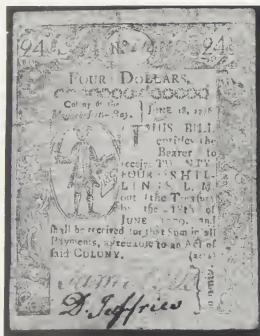 24s No 24s
FOUR DOLLARS.
Colony of the
Massachusetts-Bay. } JUNE 18, 1776
THIS BILL
entitles the
Bearer to
receive TWENTY
FOUR SHIL-
LINGS L. M.
out of the Treasury
by the 18th of
JUNE and
shall be received for that Sum in all
Payments, agreeable to an Act of
said COLONY.
D. Jeffries